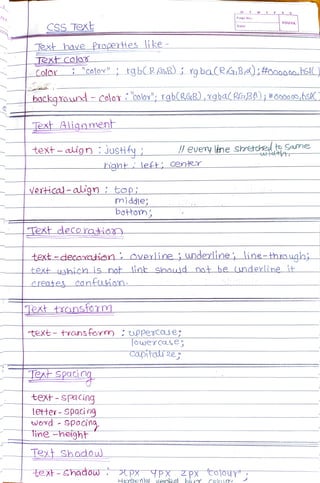 CSS Text
Text have Properties like -
Text color
Color : "color" ; rgb(R,G,B) ; rgba(R,G,B,A);#000000,hsl( )
background - color : "color"; rgb(R,G,B), rgba(R,G,B,A); #000000,hsl( )
Text Alignment
text-align : justify ; // every line stretched to same width.
right ; left ; center
vertical-align : top;
middle;
bottom;
Text decoration
text-decoration : overline ; underline ; line-through;
text which is not link should not be underline it
creates confusion.
Text transform
text-transform : uppercase;
lowercase;
capitalize;
Text spacing
text-spacing
letter-spacing
word-spacing
line-height
Text Shadow
text-shadow : 2px 4px 2px "colour" ;